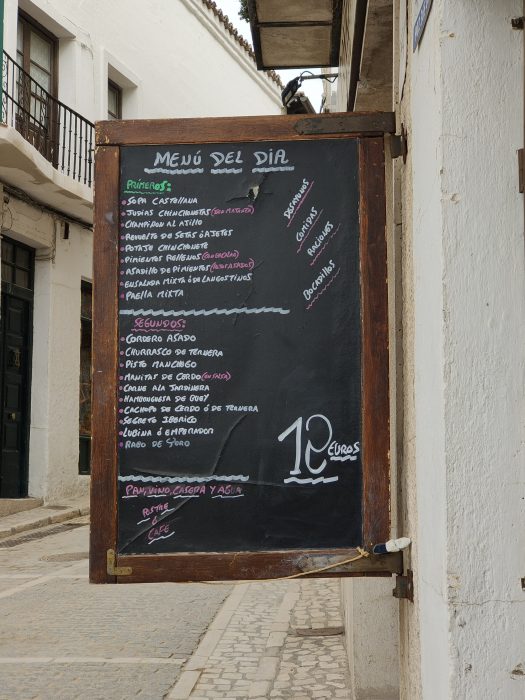 MENÚ DEL DIA
PRIMEROS:
SOPA CASTELLANA
JUDIAS CHINCHONETAS
CHAMPIÑON AL AJILLO
REVUELTO DE SETAS Ó AJETES
POTAJE CHINCHONETE
PIMIENTOS RELLENOS
ASADILLO DE PIMIENTOS
ENSALADA MIXTA Ó DE LANGOSTINOS
PAELLA MIXTA
SEGUNDOS:
CORDERO ASADO
CHURRASCO DE TERNERA
PISTO MANCHEGO
MANITAS DE CERDO (EN SALSA)
CARNE A LA JARDINERA
HAMBURGUESA DE BUEY
CACHOPO DE CERDO Ó DE TERNERA
SECRETO IBERICO
LUBINA Ó EMPERADOR
RABO DE TORO
PAN, VINO, CASERA Y AGUA
POSTRE
Ó
CAFE
DESAYUNOS
COMIDAS
RACIONES
BOCADILLOS
EUROS